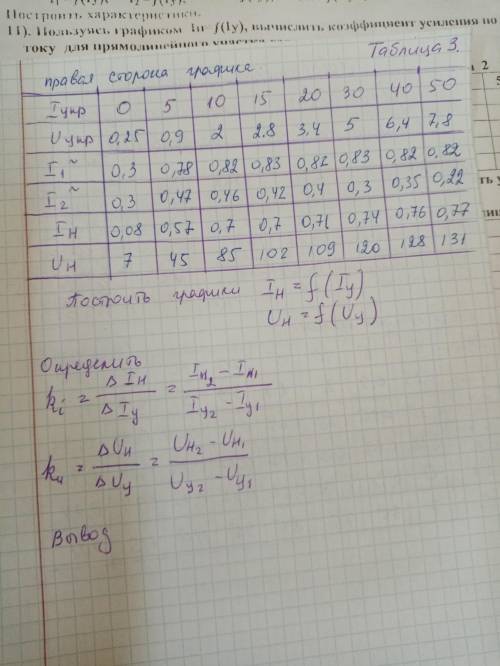 Построить характеристики.
11). Пользуясь графиком Iн= f(Iу), вычислить коэффициент усиления по
току для прямолинейного участка
Таблица 3.
правая сторона графика
Iупр 0 5 10 15 20 30 40 50
Uупр 0,25 0,9 2 2,8 3,4 5 6,4 7,8
I₁~ 0,3 0,78 0,82 0,83 0,82 0,83 0,82 0,82
I₂~ 0,3 0,47 0,46 0,42 0,4 0,3 0,35 0,22
Iн 0,08 0,57 0,7 0,7 0,71 0,74 0,76 0,77
Uн 7 45 85 102 109 120 128 131
Построить графики Iн = f(Iу)
Uн = f(Uу)
Определить
ki = ΔIн / ΔIу = Iн2 - Iн1 / Iу2 - Iу1
kн = ΔUн / ΔUу = Uн2 - Uн1 / Uу2 - Uу1
Вывод